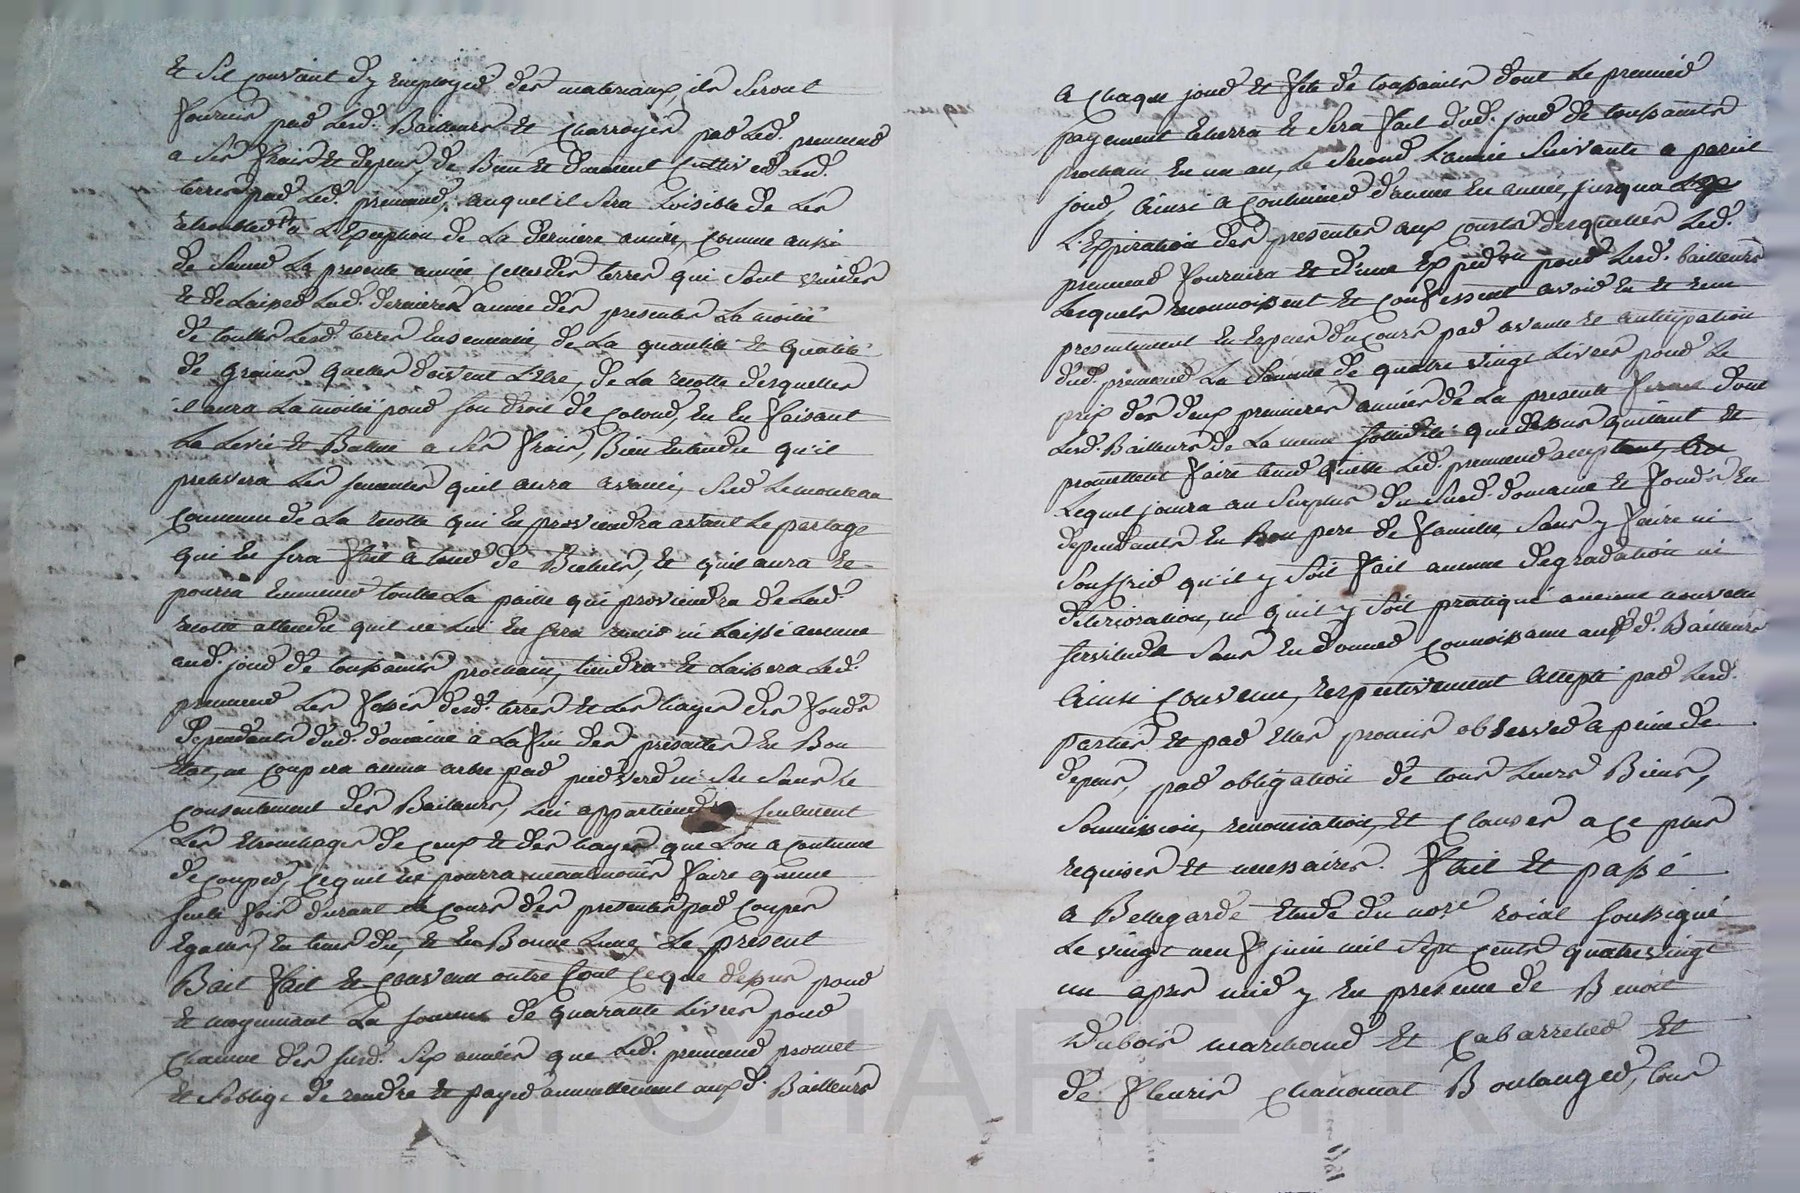 et sil convient d'y employer des materiaux, ils seront
fournis par lesd. Bailleurs et charroyés par led. preneur
a ses frais et depens, de Bien et duement cultiver lesd.
terres par led. preneur, auquel il sera loisible de les
retroubler a L'Exception de La derniere année, comme aussi
de semer La presente année celles des terres qui sont vuides
et de laisser lad. derniere année des presentes La moitié
de touttes lesd. terres Ensemencée, de La quantité et qualité
de grains quelles doivent L'Etre, de La recolte desquelles
il aura La moitié pour son droit de colond, En En faisant
La Levée et Batture a ses frais, Bien Entendu qu'il
prelevera Les semences quil aura avancé, sur Le monceau
commun de La recolte qui En proviendra avant Le partage
qui En sera fait a tour de Bichets, et quil aura et
pourra Emmener toutte La paille qui proviendra de Lad.
recolte attendu quil ne Lui En sera remis ni Laissé aucune
aud. jour de toussaints prochain, tiendra et Laissera Led.
preneur Les fossés desd. terres et Les hayes des fonds
dependants dud. domaine a La fin des presentes En Bon
Etat, ne coupera aucun arbre par pied verd ni sec sans le
consentement des Bailleurs, Lui appartiendra seulement
Les Etronchages de ceux et des hayes que Lon a coutume
de couper, ce quil ne pourra neanmoins faire qu'une
seule fois durant le cours des presentes par coupes
Egalles, En tems du, et En Bonne Lune, Le present
Bail fait et convenu outre tout ce que dessus pour
et moyennant La somme de quarante Livres pour
chacune des susd. six années que Led. preneur promet
et s'oblige de rendre et payer annuellement auxd. Bailleurs
a chaque jour et fête de toussaints dont Le premier
payement Echerra et sera fait dud. jour de toussaints
prochain En un an, Le second L'année suivante a pareil
jour, Ainsi a continuer d'année En année, jusqua
L'Expiration des presentes aux couts desquelles Led.
preneur fournira et d'une Expedon pour Lesd. bailleurs
Lesquels reconnoissent et confessent avoir Eu et reçu
presentement En Especes du cours par avance et anticipation
dud. preneur La somme de quatre vingt Livres pour Le
prix des deux premieres années de La presente ferme dont
Lesd. Bailleurs de La meme sollidité que dessus quittent et
promettent faire tenir quitte Led. preneur acceptant,
Lequel jouira au surplus du susd. domaine et fonds En
dependants En Bon pere de famille, sans y faire ni
souffrir qu'il y soit fait aucune degradation ni
deterioration, ni qu'il y soit pratiqué aucune nouvelle
servitude sans En donner connoissance auxd. Bailleurs
Ainsi convenu, respectivement accepté par Lesd.
parties et par Elles promis observer a peine de
depens, par obligation de tous Leurs Biens,
soumission, renonciation, et clauses a ce plus
requises et necessaires. fait et passé
a Bellegarde Etude du nore roial soussigné
Le vingt neuf juin mil sept cents quatre vingt
un apres midy En presence de Benoit
Dubois marchand et cabarretier et
de fleuris chanonat Boulanger, tous